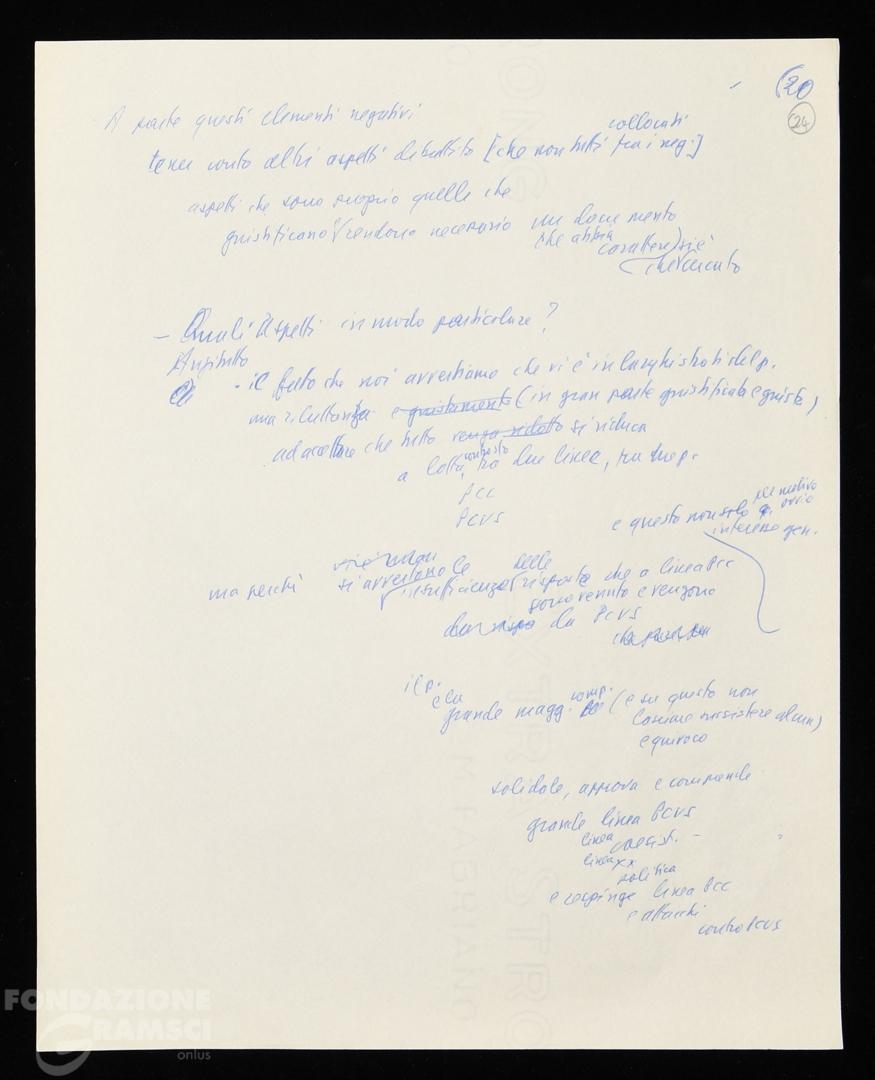 (20
24
A parte questi elementi negativi
collocati
tener conto altri aspetti dibattito [che non tutti fra i neg.]
aspetti che sono proprio quelle che
giustificano e rendono necessario un documento
che abbia
carattere) si è
che cercato
– Quali aspetti in modo particolare?
Anzitutto
a) · il fatto che noi avvertiamo che vi è in larghi strati del p.
una riluttanza e giustamente (in gran parte giustificata e giusta)
ad accettare che tutto venga ridotto si riduca
contrasto
a lotta, tra due linee, tra due p.
PCC
PCUS
e questo non solo per motivo
p. ovvio
interesse gen.
ma perché si avvertono le insufficienze delle risposte che a linea PCC
sono venute e vengono
da PCUS
il p.
e la
grande magg. comp. (e su questo non
lasciare sussistere alcun)
equivoco
solidale, approva e comprende
grande linea PCUS
linea coesist. –
linea XX
politica
e respinge linea PCC
e attacchi
contro PCUS
M. FABRIANO
FONDAZIONE
GRAMSCI
onlus